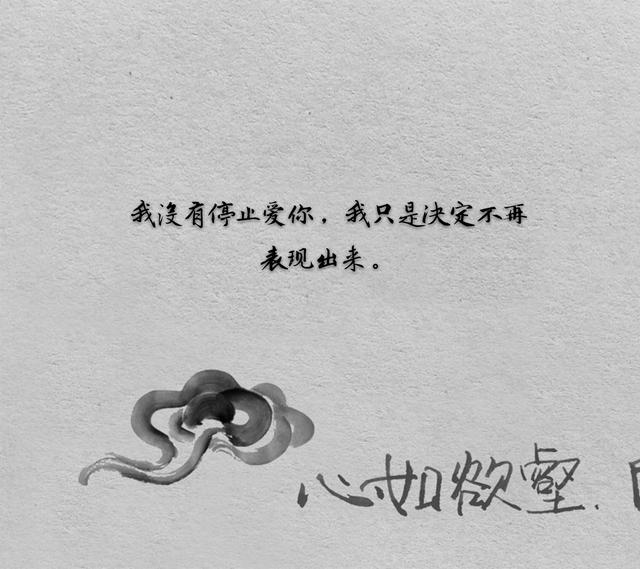 我没有停止爱你，我只是决定不再
表现出来。
心如欲壑.